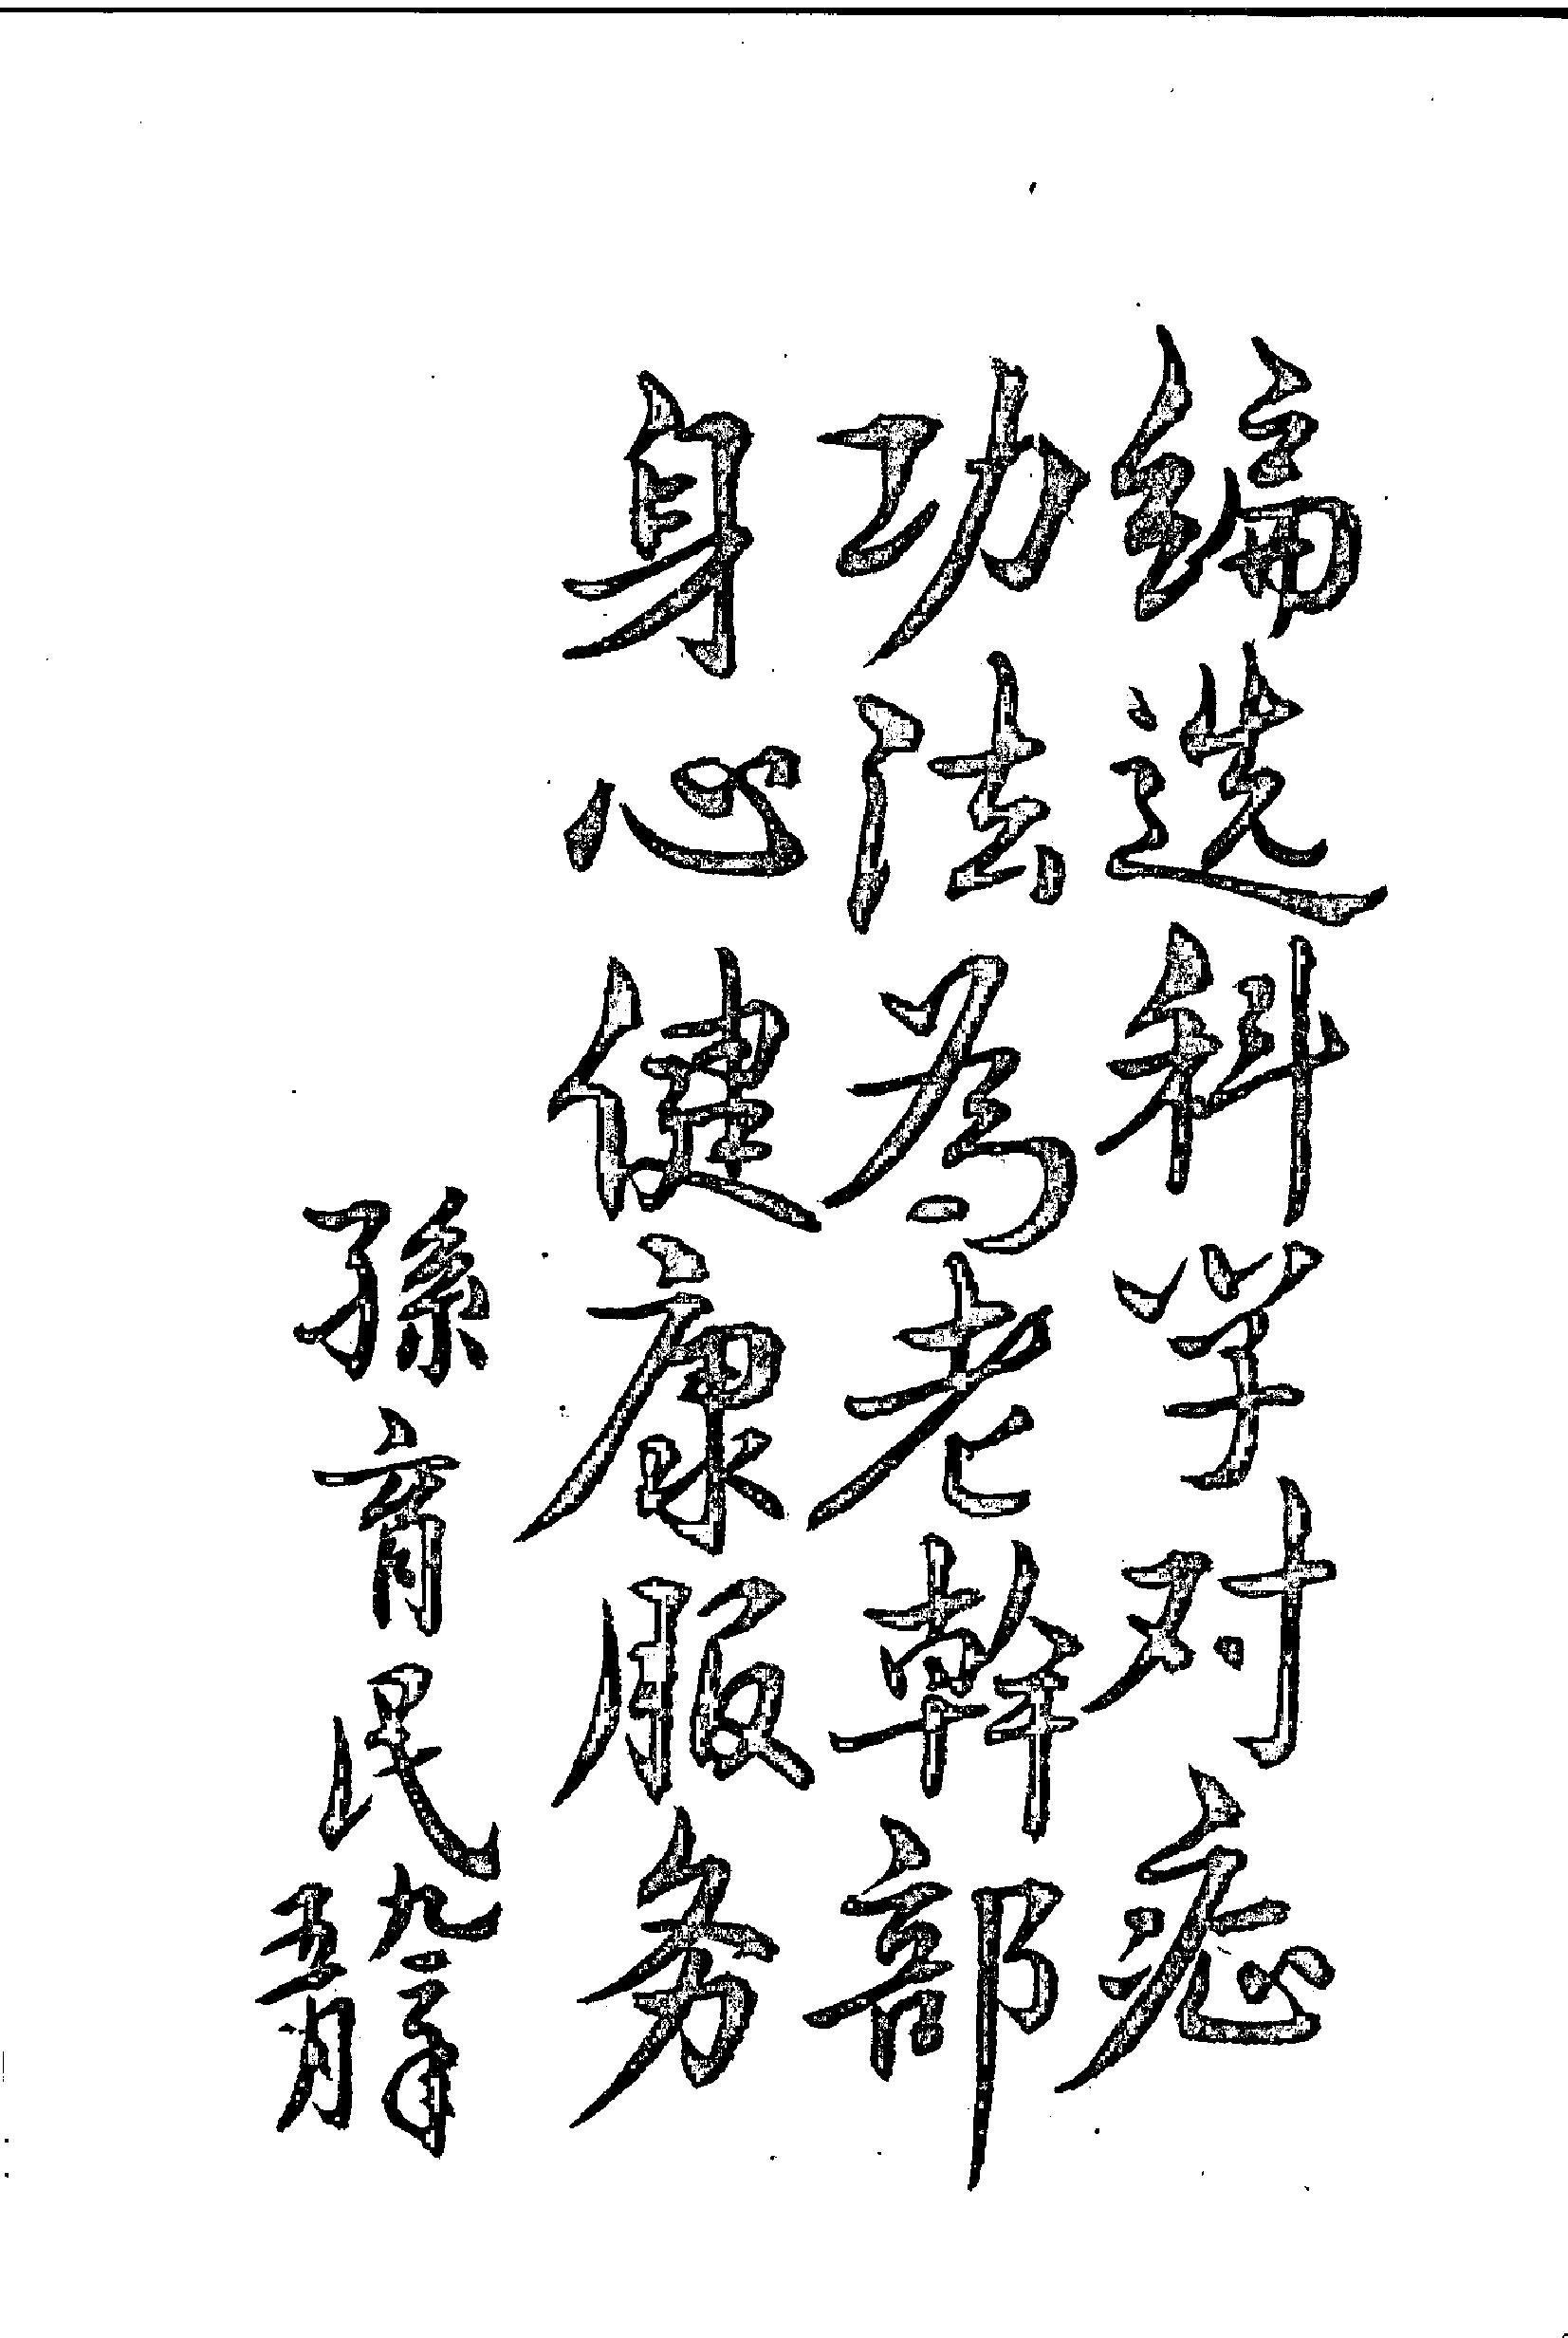 编选科学对症
功法為老幹部
身心健康服务
孫育民
九二年
五月